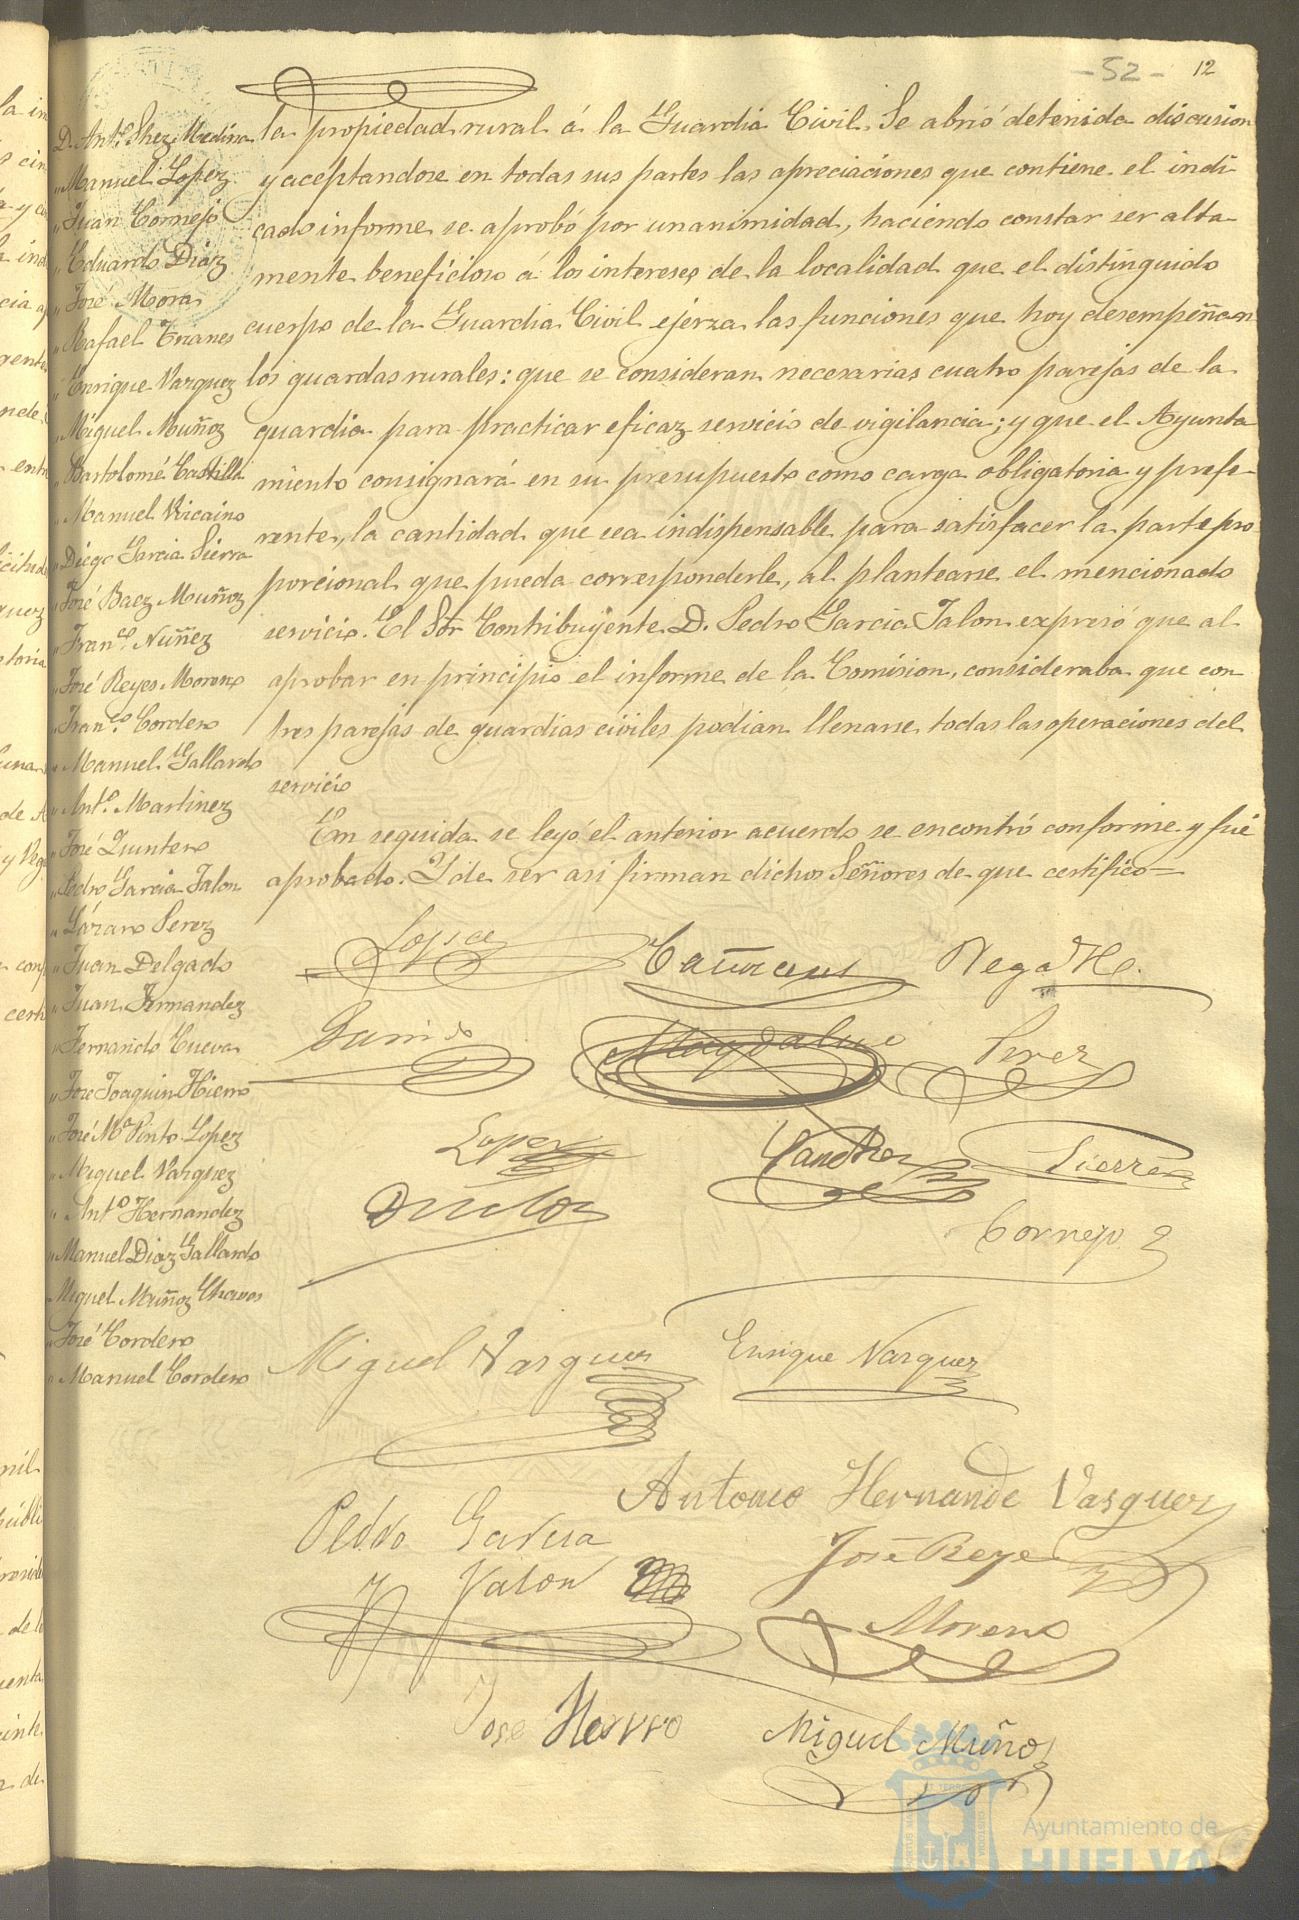 - 52 -
12
D. Ant.º Shez Medina
" Manuel Lopez
" Juan Cornejo
" Eduardo Diaz
" José Mora
" Rafael Teranes
" Enrique Vazquez
" Miguel Muñoz
" Bartolomé Castilla
" Manuel Vicaino
" Diego Garcia Sierra
" José Baez Muñoz
" Fran.co Nuñez
" José Reyes Moreno
" Fran.co Cordero
" Manuel Gallardo
" Ant.º Martinez
" José Quintero
" Pedro Garcia Jalon
" Lázaro Perez
" Juan Delgado
" Juan Fernandez
" Fernando Cueva
" José Joaquin Hierro
" José M.ª Pinto Lopez
" Miguel Vazquez
" Ant.º Hernandez
" Manuel Diaz Gallardo
Miguel Muñoz Chaves
" José Cordero
" Manuel Cordero
la propiedad rural á la Guardia Civil. Se abrió detenida discusion
y aceptandose en todas sus partes las apreciaciones que contiene el indi
cado informe se aprobó por unanimidad, haciendo constar ser alta
mente beneficioso á los intereses de la localidad que el distinguido
cuerpo de la Guardia Civil ejerza las funciones que hoy desempeñan
los guardas rurales: que se consideran necesarias cuatro parejas de la
guardia para practicar eficaz servicio de vigilancia; y que el Ayunta
miento consignará en su presupuesto como carga obligatoria y prefe-
rente, la cantidad que sea indispensable para satisfacer la parte pro
porcional que pueda corresponderle, al plantearse el mencionado
servicio. El Sor Contribuyente D. Pedro Garcia Jalon expresó que al
aprobar en principio el informe de la Comision, consideraba que con
tres parejas de guardias civiles podian llenarse todas las operaciones del
servicio
En seguida se leyó el anterior acuerdo se encontró conforme y fué
aprobado. Y de ser asi firman dichos Señores de que certifico=
Lopez
Vega H.
Garrido
Magdaleno
Perez
Lopez
Sanchez
Sierra
Cornejo
Miguel Vazquez
Enrique Vazquez
Antonio Hernande Vasquez
Pedro Garcia
Jalon
José Reye
Moreno
Jose Hierro
Miguel Muñoz
Ayuntamiento de
HUELVA